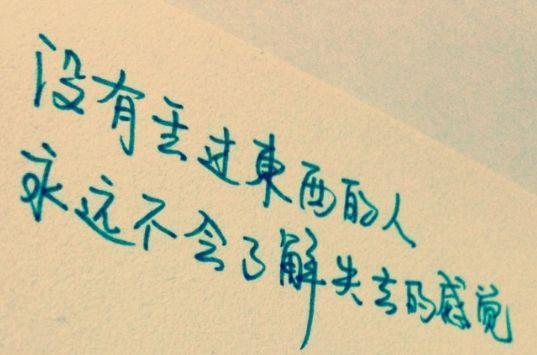 没有丢过東西的人
永远不会了解失去的感觉